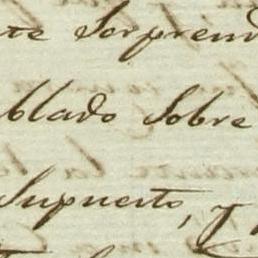 te Sorprend
blado Sobre
Supuesto, y